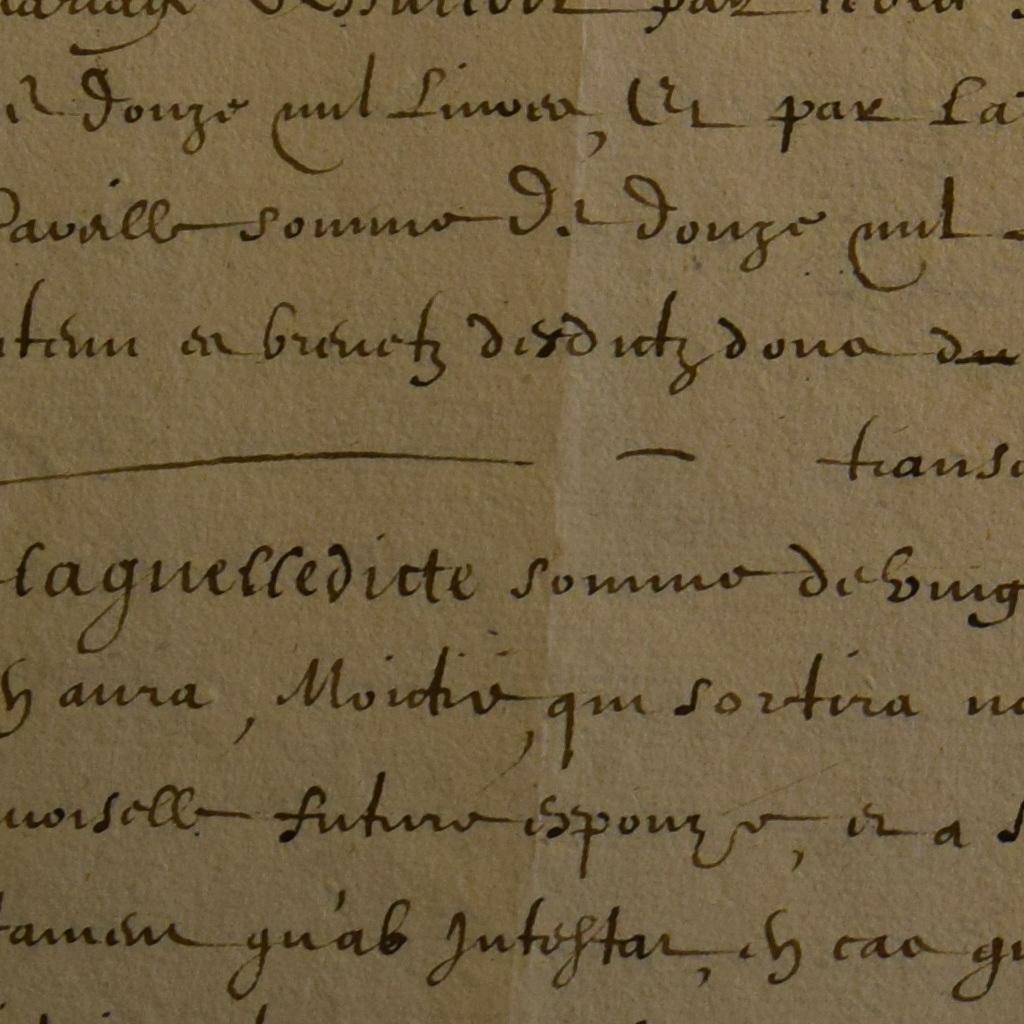 mariage par
de douze mil Livres, Et par La
Pareille somme De douze mil
contenu es brevetz desdictz dons du
transc
laquelledicte somme de ving
en aura, Moictie, qui sortira no
moiselle future espouze, et a s
tament qu'ab Intestat, en cas qu